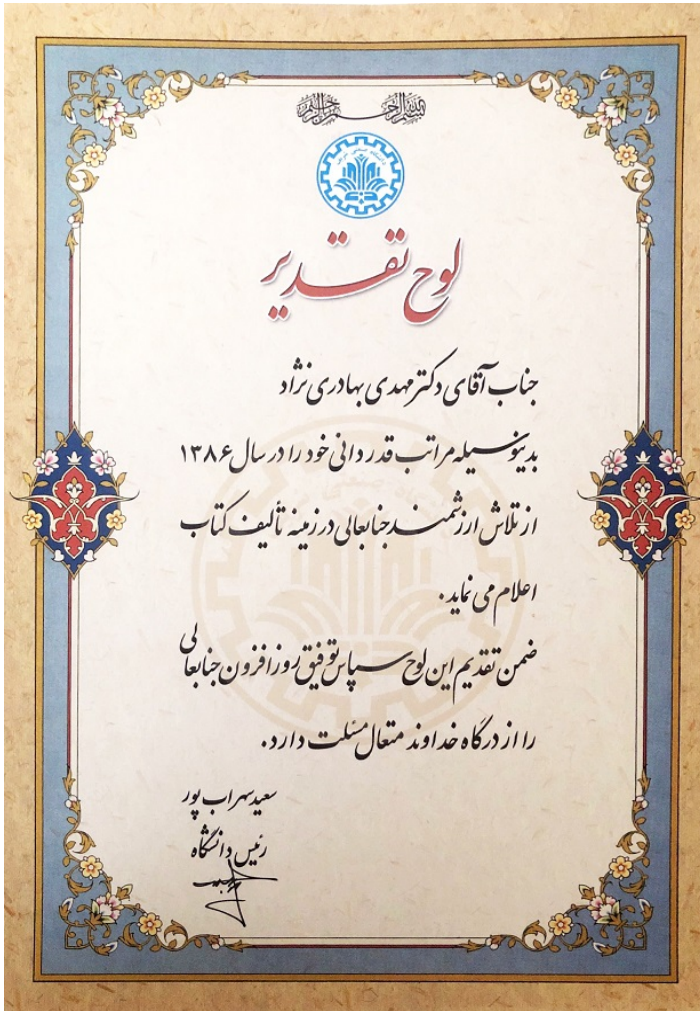 بسم الله الرحمن الرحیم
دانشگاه صنعتی شریف
لوح تقدیر
جناب آقای دکتر مهدی بهادری نژاد
بدینوسیله مراتب قدردانی خود را در سال ۱۳۸۶
از تلاش ارزشمند جنابعالی در زمینه تألیف کتاب
اعلام می نماید.
ضمن تقدیم این لوح سپاس توفیق روز افزون جنابعالی
را از درگاه خداوند متعال مسئلت دارد.
سعید سهراب پور
رئیس دانشگاه